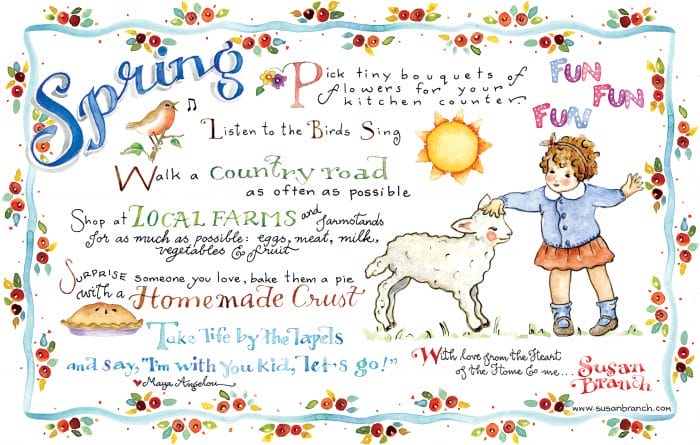 Spring
Pick tiny bouquets of
flowers for your
kitchen counter
FUN
FUN
FUN
Listen to the Birds Sing
Walk a Country road
as often as possible
Shop at LOCAL FARMS and farmstands
for as much as possible: eggs, meat, milk,
vegetables & fruit
SURPRISE someone you love, bake them a pie
with a Homemade Crust
Take life by the lapels
and say, "I'm with you kid, let's go!"
♥ Maya Angelou
With love from the Heart
of the Home & me...
Susan
Branch
www.susanbranch.com